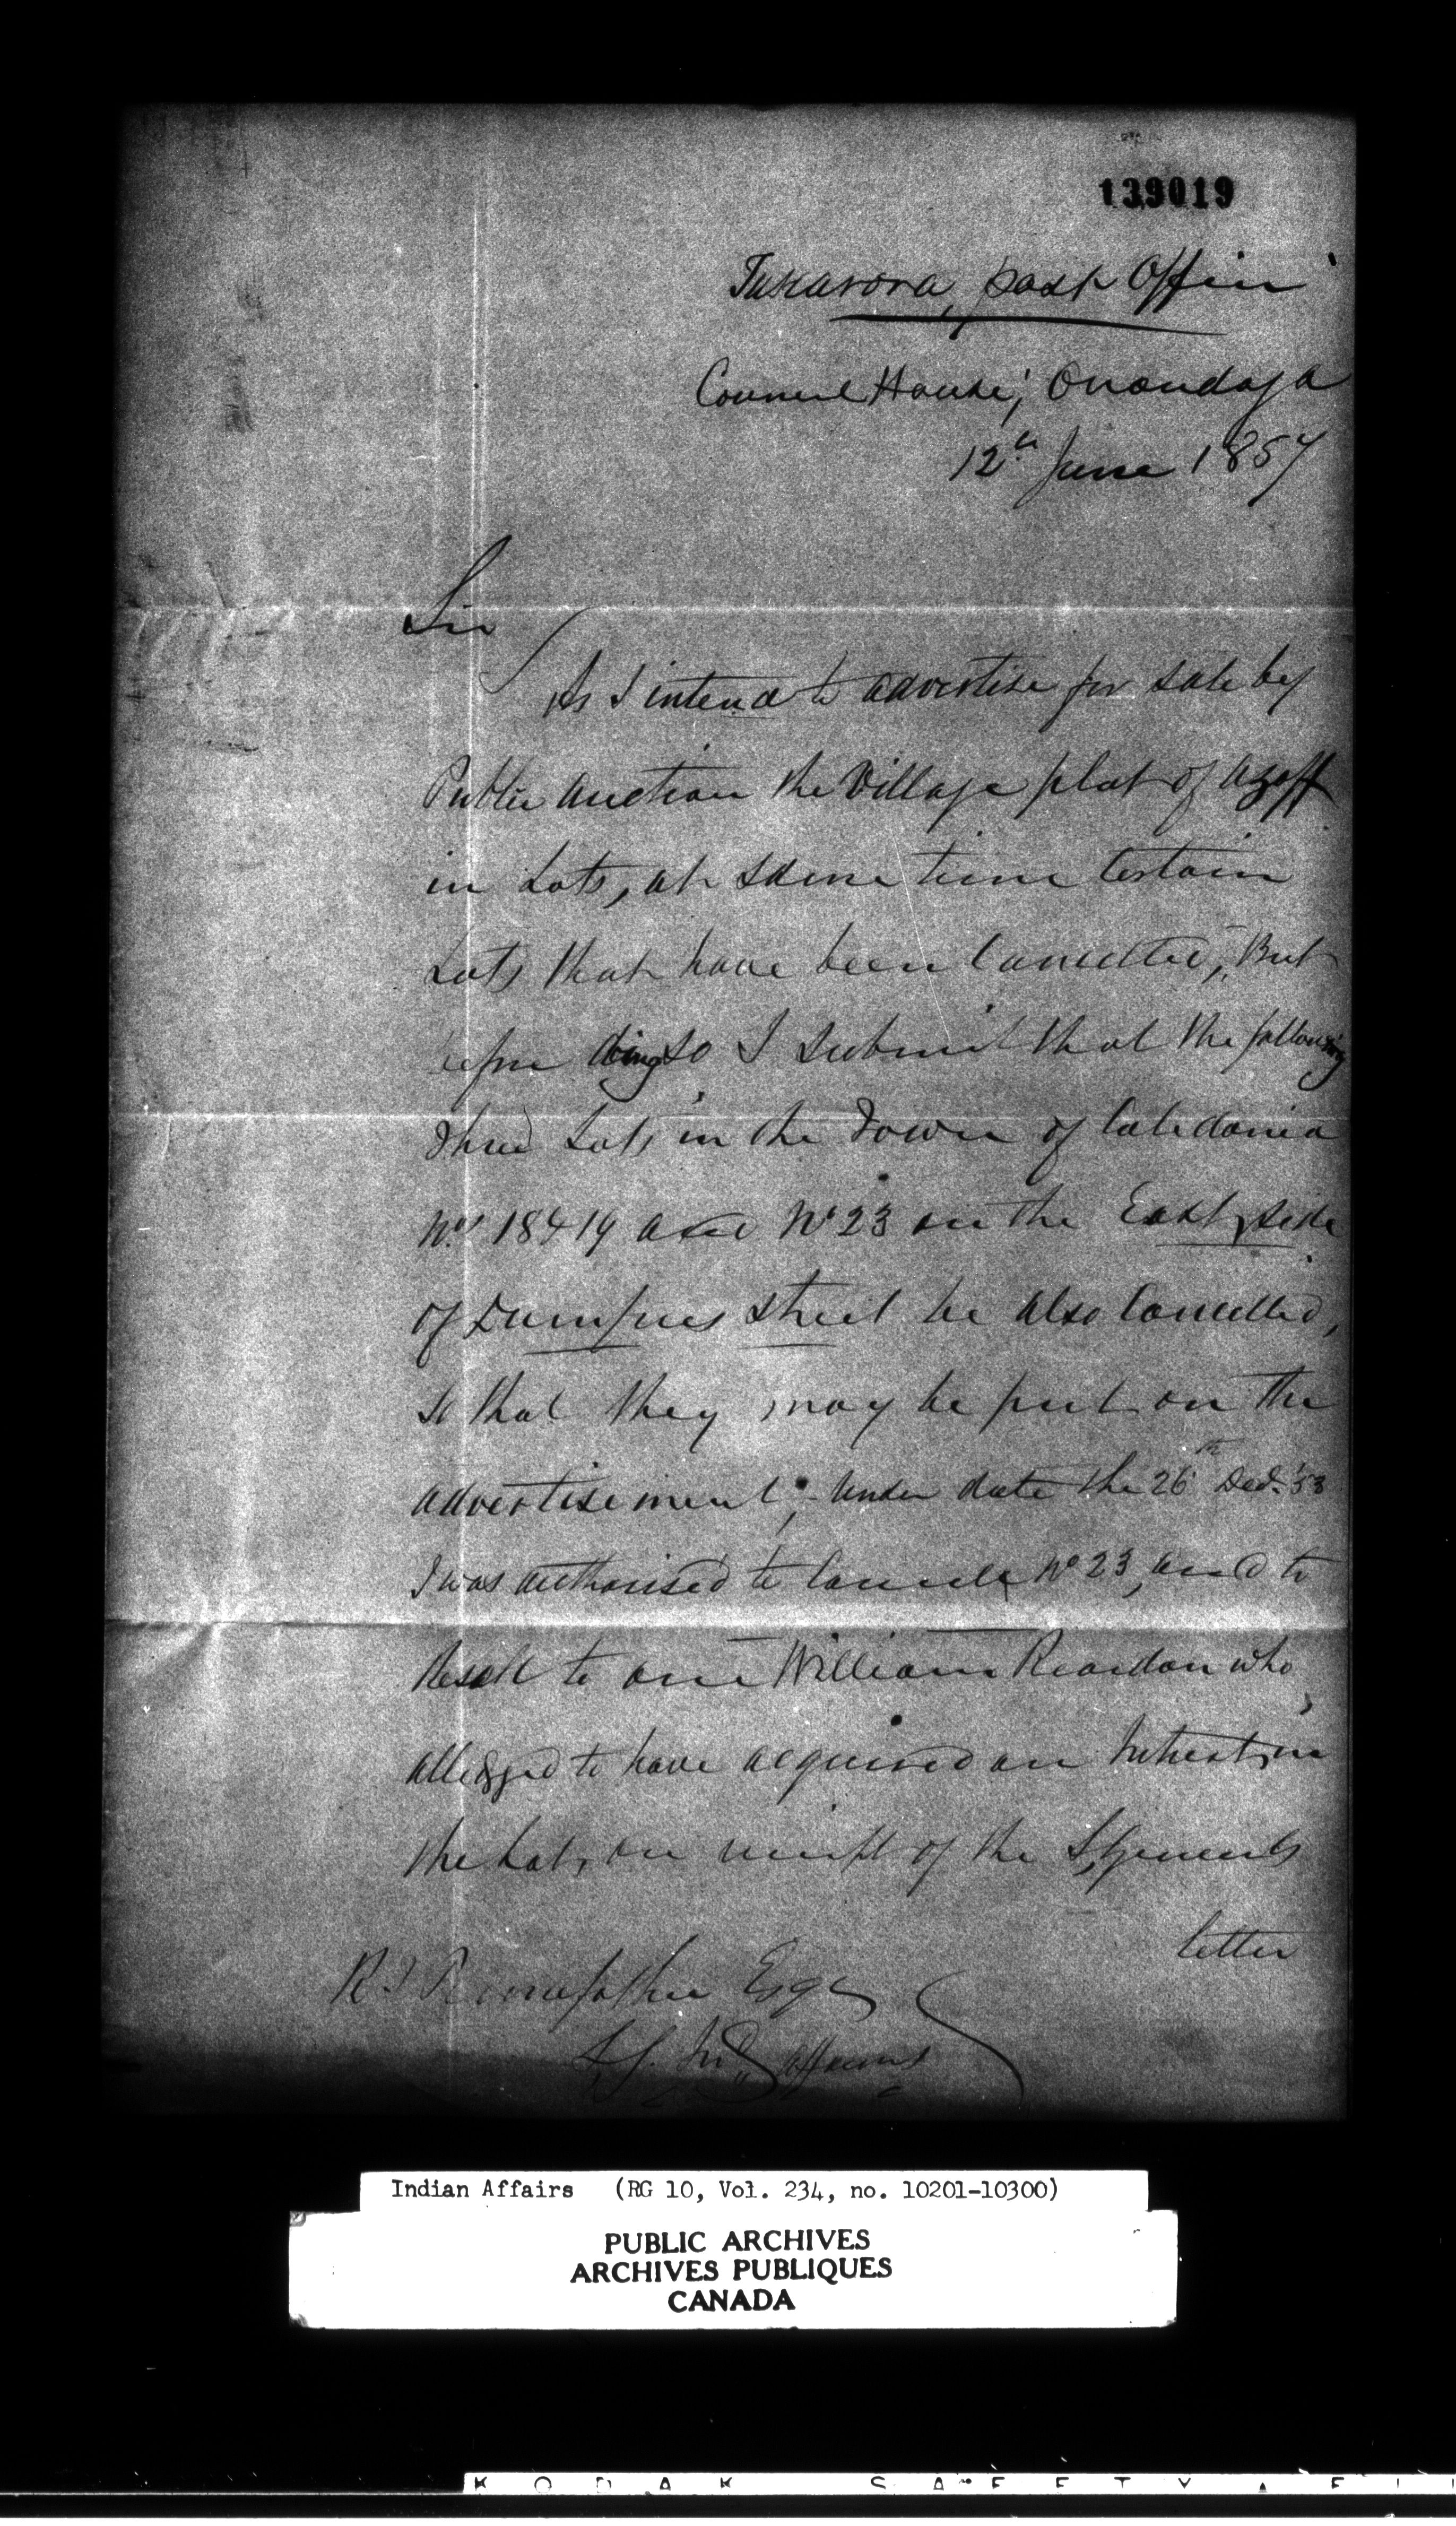 139019
Tuscarora, post Office
Council House, Onondaga
12th June 1857
Sir
As I intend to advertise for sale by
Public auction the Village plot of Azoff
in Lots, at same time Certain
Lots that have been Cancelled, But
before doing so I submit that the following
three Lots in the Town of Caledonia
Nos 18 & 19 and No 23 on the East side
of Dumfries street be also Cancelled,
so that they may be put on the
advertisement, - Under date the 26th Decr '53
I was authorised to Cancel No 23, and to
Resell to one William Reardon who,
alledged to have acquired an Interest in
the Lot, on receipt of the
letter
R. T. Pennefather Esqr
S. G. Ind. Affairs
Indian Affairs (RG 10, Vol. 234, no. 10201-10300)
PUBLIC ARCHIVES
ARCHIVES PUBLIQUES
CANADA
KODAK SAFETY